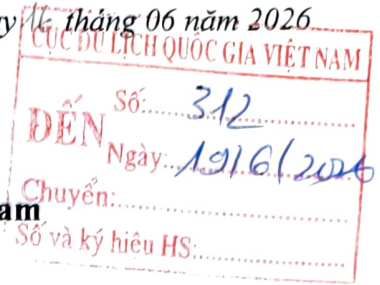 y 16 tháng 06 năm 2026
CỤC DU LỊCH QUỐC GIA VIỆT NAM
ĐẾN
Số: 312
Ngày: 19/6/2026
Chuyển:
am
Số và ký hiệu HS: